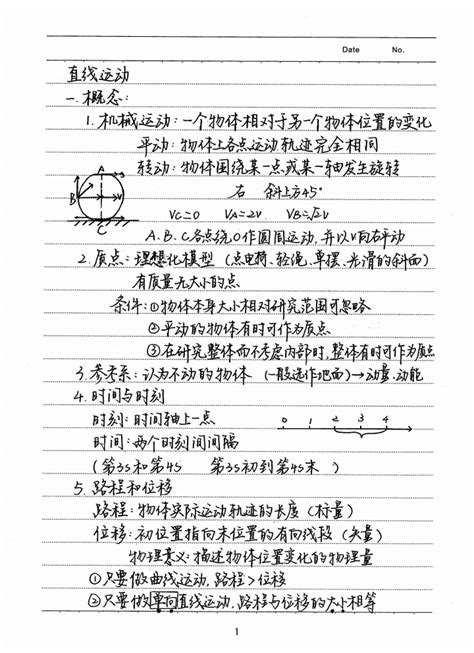 Date No.
直线运动
一.概念:
1.机械运动:一个物体相对于另一个物体位置的变化
平动:物体上各点运动轨迹完全相同
转动:物体围绕某一点或某一轴发生旋转
A
B
V
C
右 斜上方45°
Vc=0 VA=2V VB=√2V
A.B.C各点绕O作圆周运动,并以V向右平动
2.质点:理想化模型(点电荷、轻绳、单摆、光滑的斜面)
有质量无大小的点
条件:①物体本身大小相对研究范围可忽略
②平动的物体有时可作为质点
③在研究整体而不考虑内部时,整体有时可作为质点
3.参考系:认为不动的物体 (一般选作地面)→动量.动能
4.时间与时刻
时刻:时间轴上一点
0 1 2 3 4
时间:两个时刻间间隔
(第3s和第4s 第3s初到第4s末 )
5.路程和位移
路程:物体实际运动轨迹的长度(标量)
位移:初位置指向末位置的有向线段(矢量)
物理意义:描述物体位置变化的物理量
①只要做曲线运动,路程>位移
②只要做单向直线运动,路程与位移的大小相等
1